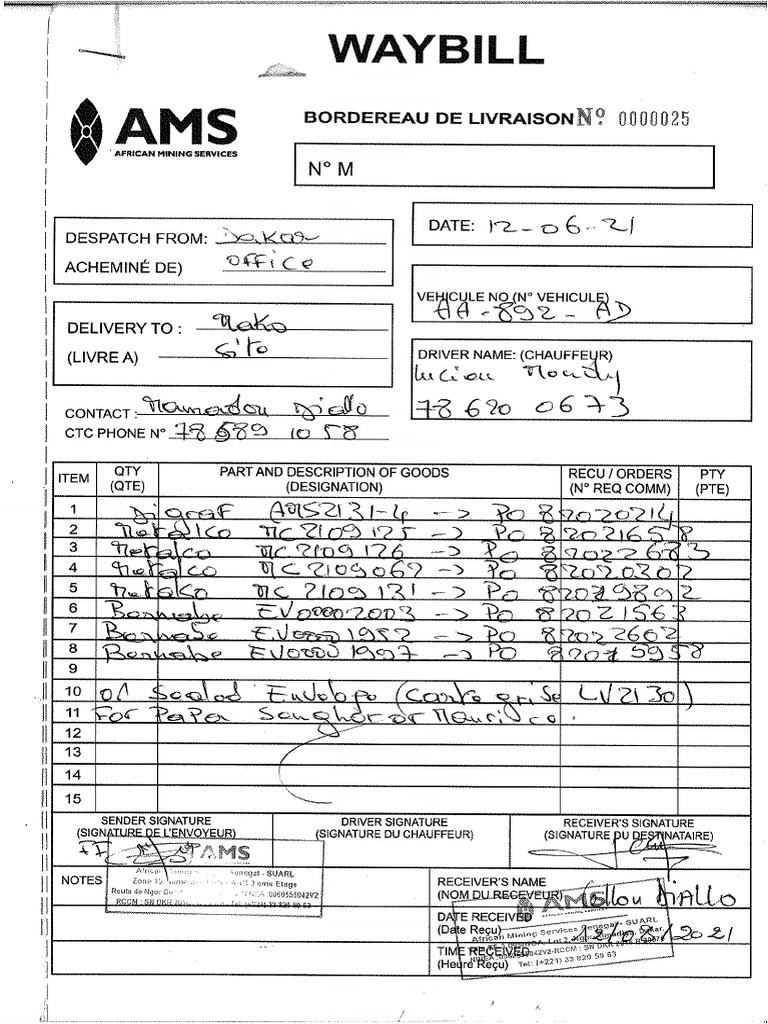 WAYBILL
AMS
AFRICAN MINING SERVICES
BORDEREAU DE LIVRAISON Nº 0000025
N° M
DESPATCH FROM: Dakar
ACHEMINÉ DE) Office
DATE: 12-06-21
VEHICULE NO (N° VEHICULE)
AA-892-AD
DELIVERY TO : Mako
(LIVRE A) Site
DRIVER NAME: (CHAUFFEUR)
Lucien Mendy
78 620 0673
CONTACT : Mamadou Diallo
CTC PHONE N° 78 689 10 58
ITEM QTY (QTE) PART AND DESCRIPTION OF GOODS (DESIGNATION) RECU / ORDERS (N° REQ COMM) PTY (PTE)
1 AMS2131-4 -> PO 82020214
2 Metalco MC2109125 -> PO 82021658
3 Metalco MC2109126 -> PO 82022683
4 Metalco MC2109062 -> PO 82020302
5 MC2109131 -> PO 82019892
6 Bernabe EV00002003 -> PO 82021563
7 Bernabe EV00001952 -> PO 82022602
8 Bernabe EV00001997 -> PO
9
10 01 Sealed Envelope (Carte grise LV2130)
11 For PaPa Senghor or Maurice.
12
13
14
15
SENDER SIGNATURE
(SIGNATURE DE L'ENVOYEUR)
DRIVER SIGNATURE
(SIGNATURE DU CHAUFFEUR)
RECEIVER'S SIGNATURE
(SIGNATURE DU DESTINATAIRE)
AMS
Senegal - SUARL
NOTES
RECEIVER'S NAME
(NOM DU RECEVEUR) DIALLO
DATE RECEIVED
(Date Reçu) 2021
TIME RECEIVED
(Heure Reçu)
AMS
African Mining Services Senegal - SUARL
Tel: (+221) 33 820 59 63